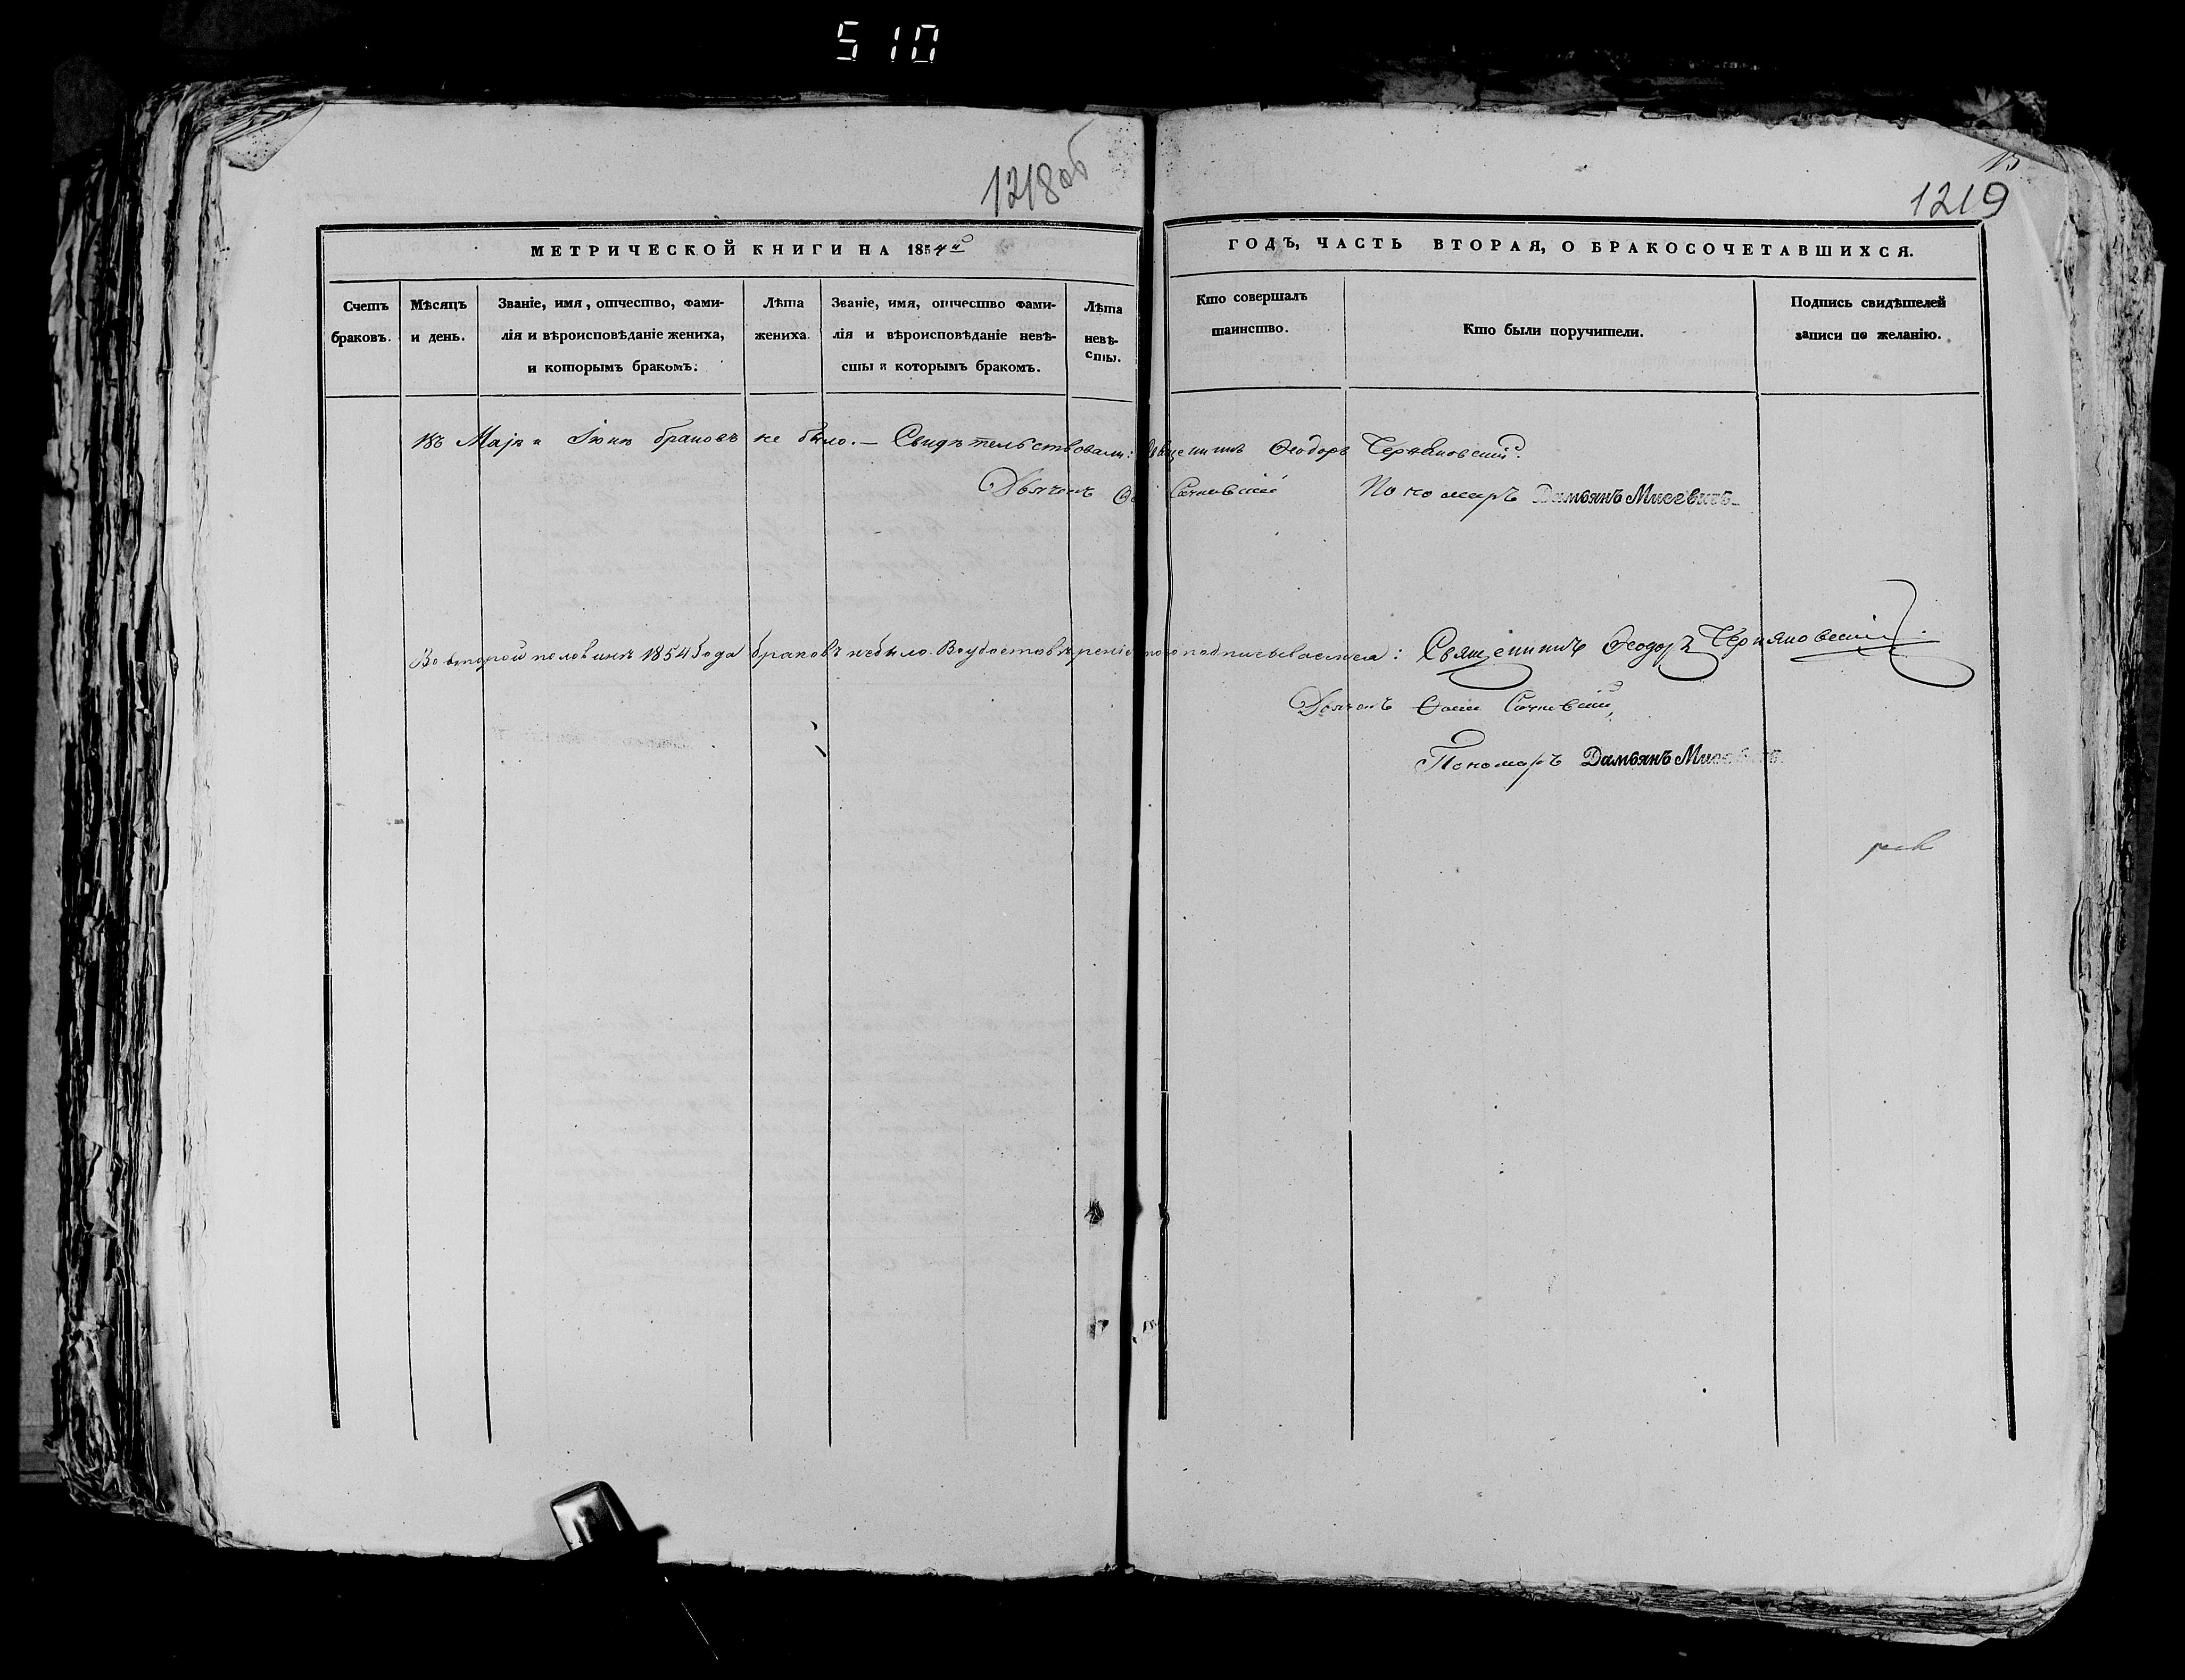 510
1218об
1219
МЕТРИЧЕСКОЙ КНИГИ НА 1854й
ГОДЪ, ЧАСТЬ ВТОРАЯ, О БРАКОСОЧЕТАВШИХСЯ.
Счетъ браковъ.
Мѣсяцъ и день.
Званіе, имя, отчество, фами-
лія и вѣроисповѣданіе жениха,
и которымъ бракомъ.
Лѣта жениха.
Званіе, имя, отчество фами-
лія и вѣроисповѣданіе невѣ-
сты и которымъ бракомъ.
Лѣта невѣ-
сты.
Кто совершалъ
таинство.
Кто были поручители.
Подпись свидѣтелей
записи по желанію.
Въ Маѣ и Іюнѣ браковъ не было. — Свидѣтельствовали: Священникъ Ѳеодоръ Черняховскій.
Дьячекъ Пономарь Дамьянъ Мисевичъ
Во второй половинѣ 1854 года браковъ небыло. Въ удостовѣреніе того подписываемся: Священникъ Ѳеодоръ Черняховскій.
Дьячекъ
Пономарь Дамьянъ Мисевичъ